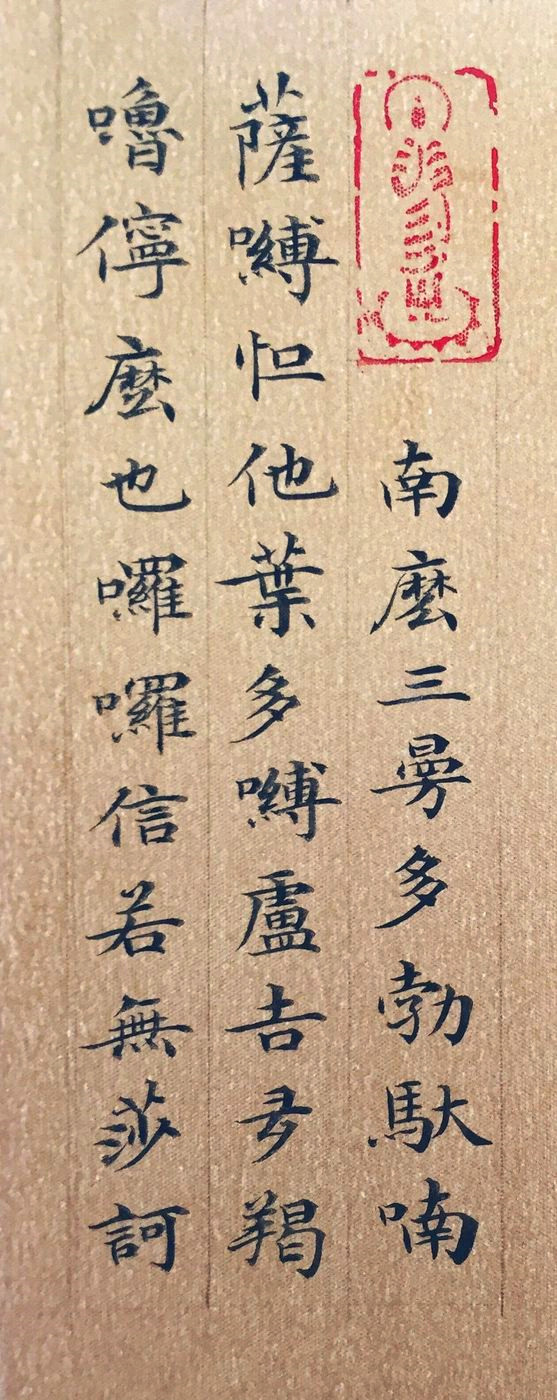 南麼三曼多勃馱喃
薩嚩怛他葉多嚩盧吉多羯
嚕儜麼也囉囉信若無莎訶